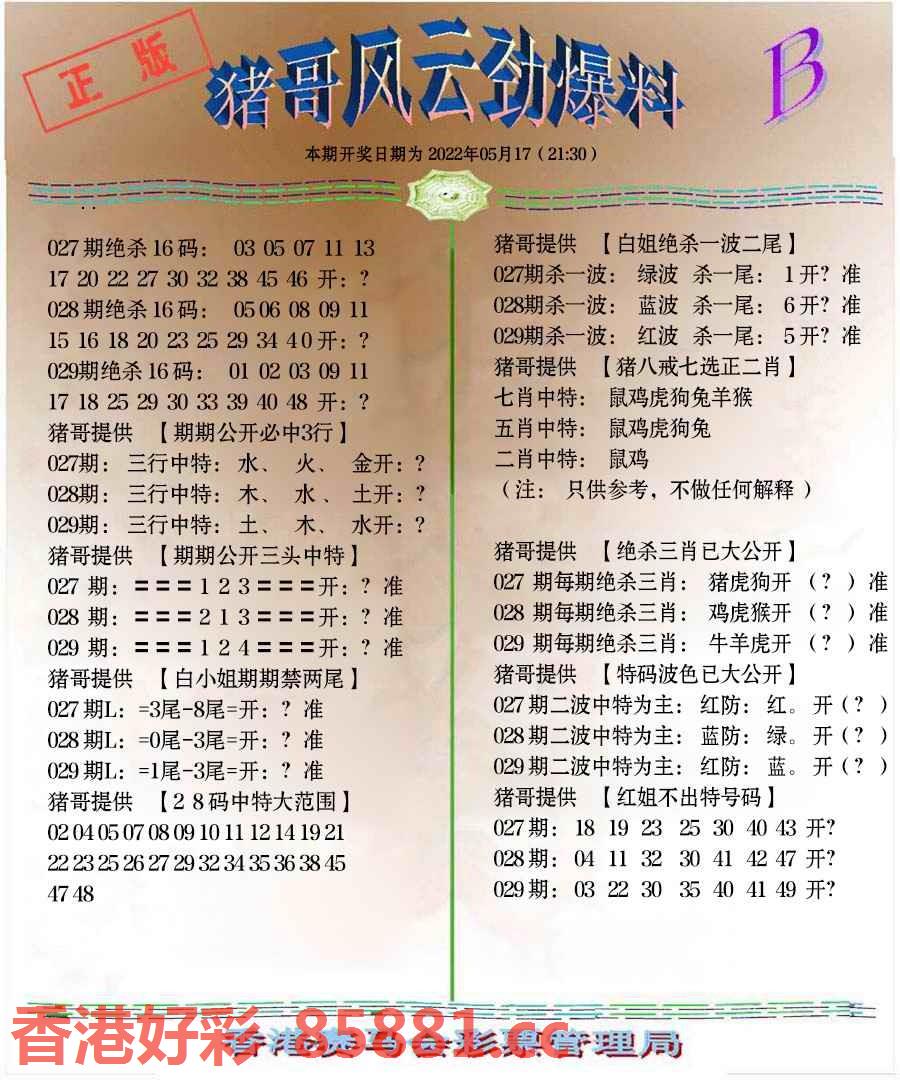 正版
猪哥风云劲爆料
B
本期开奖日期为 2022年05月17（21:30）
027期绝杀16码： 03 05 07 11 13
17 20 22 27 30 32 38 45 46 开：?
028期绝杀16码： 05 06 08 09 11
15 16 18 20 23 25 29 34 40 开：?
029期绝杀16码： 01 02 03 09 11
17 18 25 29 30 33 39 40 48 开：?
猪哥提供 【期期公开必中3行】
027期： 三行中特：水、 火、 金开：?
028期： 三行中特：木、 水、 土开：?
029期： 三行中特：土、 木、 水开：?
猪哥提供 【期期公开三头中特】
027 期：===1 2 3===开：? 准
028 期：===2 1 3===开：? 准
029 期：===1 2 4===开：? 准
猪哥提供 【白小姐期期禁两尾】
027期L：=3尾-8尾=开：? 准
028期L：=0尾-3尾=开：? 准
029期L：=1尾-3尾=开：? 准
猪哥提供 【28码中特大范围】
02 04 05 07 08 09 10 11 12 14 19 21
22 23 25 26 27 29 32 34 35 36 38 45
47 48
猪哥提供 【白姐绝杀一波二尾】
027期杀一波： 绿波 杀一尾： 1开? 准
028期杀一波： 蓝波 杀一尾： 6开? 准
029期杀一波： 红波 杀一尾： 5开? 准
猪哥提供 【猪八戒七选正二肖】
七肖中特： 鼠鸡虎狗兔羊猴
五肖中特： 鼠鸡虎狗兔
二肖中特： 鼠鸡
（注： 只供参考，不做任何解释）
猪哥提供 【绝杀三肖已大公开】
027 期每期绝杀三肖： 猪虎狗开 （?）准
028 期每期绝杀三肖： 鸡虎猴开 （?）准
029 期每期绝杀三肖： 牛羊虎开 （?）准
猪哥提供 【特码波色已大公开】
027期二波中特为主： 红防：红。开（?）
028期二波中特为主： 蓝防：绿。开（?）
029期二波中特为主： 红防：蓝。开（?）
猪哥提供 【红姐不出特号码】
027期： 18 19 23 25 30 40 43 开?
028期： 04 11 32 30 41 42 47 开?
029期： 03 22 30 35 40 41 49 开?
香港好彩 85881.cc
香港赛马会彩票管理局